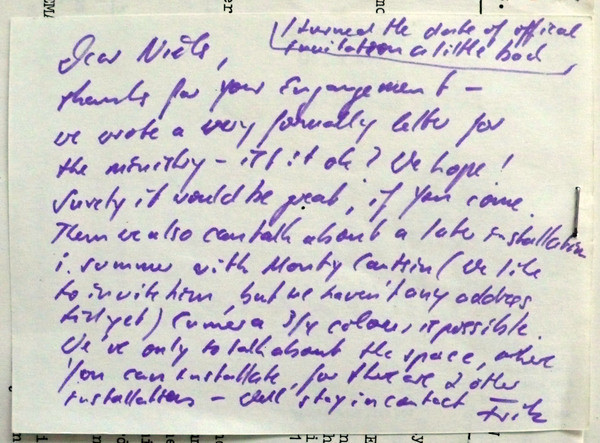 I turned the date of offical
invitation a little back
Dear Niels,
thanks for your Engangement –
we wrote a very formally letter for
the ministry – is it ok? We hope!
Surely it would be great, if you come.
Then we also can talk about a later installation
i. summer with Monty Cantsin (we like
to invite him, but we haven't any address
till yet) Camera 3/4 colour, is possible.
We 've only to talk about the space, where
You can installate, for there are 2 other
installations – well stay in contact